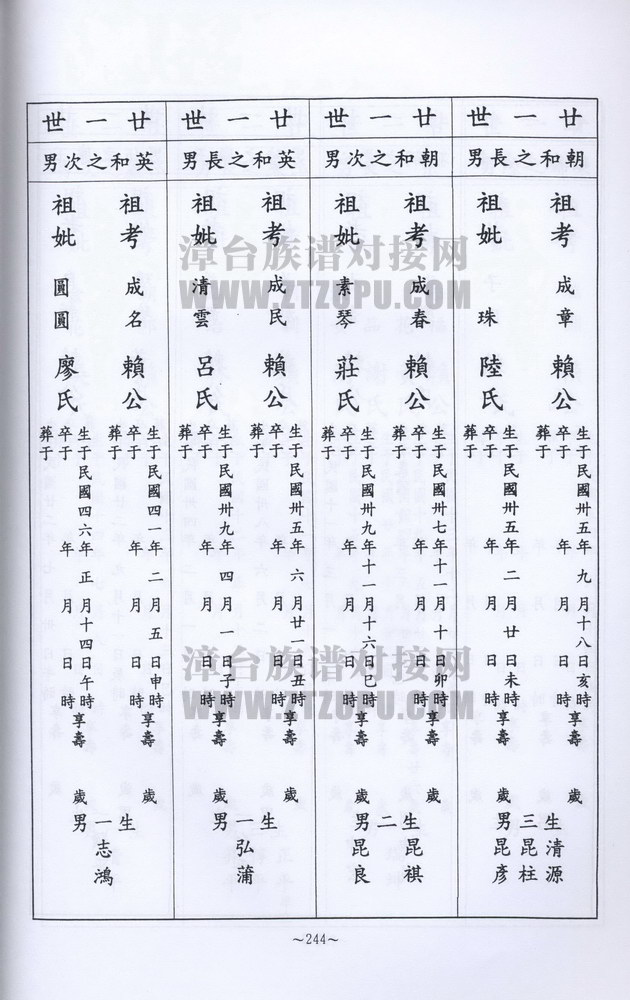 廿一世
朝和之長男
祖考 成章 賴公
生于民國卅五年九月十八日亥時享壽
卒于 年 月 日 時 歲
葬于
祖妣 珠 陸氏
生于民國卅五年二月廿日未時享壽
卒于 年 月 日 時 歲
葬于
生三男
清源
昆柱
昆彥
廿一世
朝和之次男
祖考 成春 賴公
生于民國卅七年十一月十日卯時享壽
卒于 年 月 日 時 歲
葬于
祖妣 素琴 莊氏
生于民國卅九年十一月十六日巳時享壽
卒于 年 月 日 時 歲
葬于
生二男
昆祺
昆良
廿一世
英和之長男
祖考 成民 賴公
生于民國卅五年六月廿一日丑時享壽
卒于 年 月 日 時 歲
葬于
祖妣 清雲 呂氏
生于民國卅九年四月一日子時享壽
卒于 年 月 日 時 歲
葬于
生一男
弘蒲
廿一世
英和之次男
祖考 成名 賴公
生于民國四一年二月五日申時享壽
卒于 年 月 日 時 歲
葬于
祖妣 圓圓 廖氏
生于民國四六年正月十四日午時享壽
卒于 年 月 日 時 歲
葬于
生一男
志鴻
~244~
漳台族谱对接网
WWW.ZTZUPU.COM
漳台族谱对接网
WWW.ZTZUPU.COM